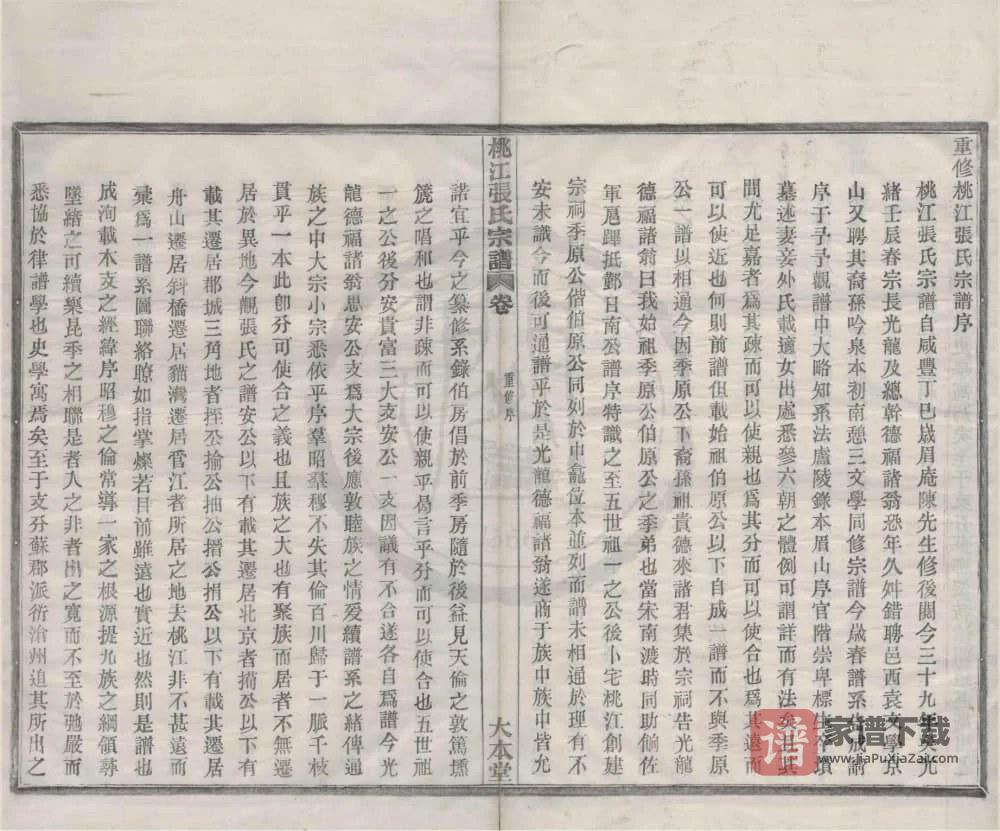 重修桃江張氏宗譜序
桃江張氏宗譜自咸豐丁巳嵗眉庵陳先生修後閱今三十九年癸光
緒壬辰春宗長光龍及總幹德福諸翁恐年久舛錯聘邑西袁文學京
山又聘其裔孫吟泉本初南憩三文學同修宗譜今嵗春譜系告成請
序于予予觀譜中大略知系法盧陵錄本眉山序官階崇卑標生卒墳
墓述妻妾外氏載適女出處悉參六朝之體例可謂詳而有法矣且其
間尤足嘉者爲其疎而可以使親也爲其分而可以使合也爲其遠而
可以使近也何則前譜但載始祖伯原公以下自成一譜而不與季原
公一譜以相通今因季原公下裔孫祖貴德來諸君集於宗祠告光龍
德福諸翁曰我始祖季原公伯原公之季弟也當宋南渡時同助餉佐
軍扈蹕抵鄞日南公譜序特識之至五世祖一之公後卜宅桃江創建
宗祠季原公偕伯原公同列於中龕位本並列而譜未相通於理有不
安未識今而後可通譜乎於是光龍德福諸翁遂商于族中族中皆允
桃江張氏宗譜 卷 重修序 大本堂
諾宜乎今之纂修系錄伯房倡於前季房隨於後益見天倫之敦篤壎
篪之唱和也謂非疎而可以使親乎曷言乎分而可以使合也五世祖
一之公後分安貴富三大支安公一支因議有不合遂各自爲譜今光
龍德福諸翁思安公支爲大宗後應敦睦族之情爰續譜系之緒傳通
族之中大宗小宗悉依乎序羣昭羣穆不失其倫百川歸于一脈千枝
貫乎一本此卽分可使合之義也且族之大也有聚族而居者不無遷
居於異地今觀張氏之譜安公以下有載其遷居北京者揚公以下有
載其遷居郡城三角地者挃公揄公抽公搢公捐公以下有載其遷居
舟山遷居斜橋遷居貓灣遷居官江者所居之地去桃江非不甚遠而
彙爲一譜系圖聯絡瞭如指掌燦若目前雖遠也實近也然則是譜也
成洵載木支之經緯序昭穆之倫常導一家之根源提九族之綱領尋
墜緒之可續樂昆季之相聯是者入之非者出之寬而不至於弛嚴而
悉協於律譜學也史學寓焉矣至于支分蘇郡派衍滄州追其所出之
譜
家谱下载
www.JiaPuXiaZai.com